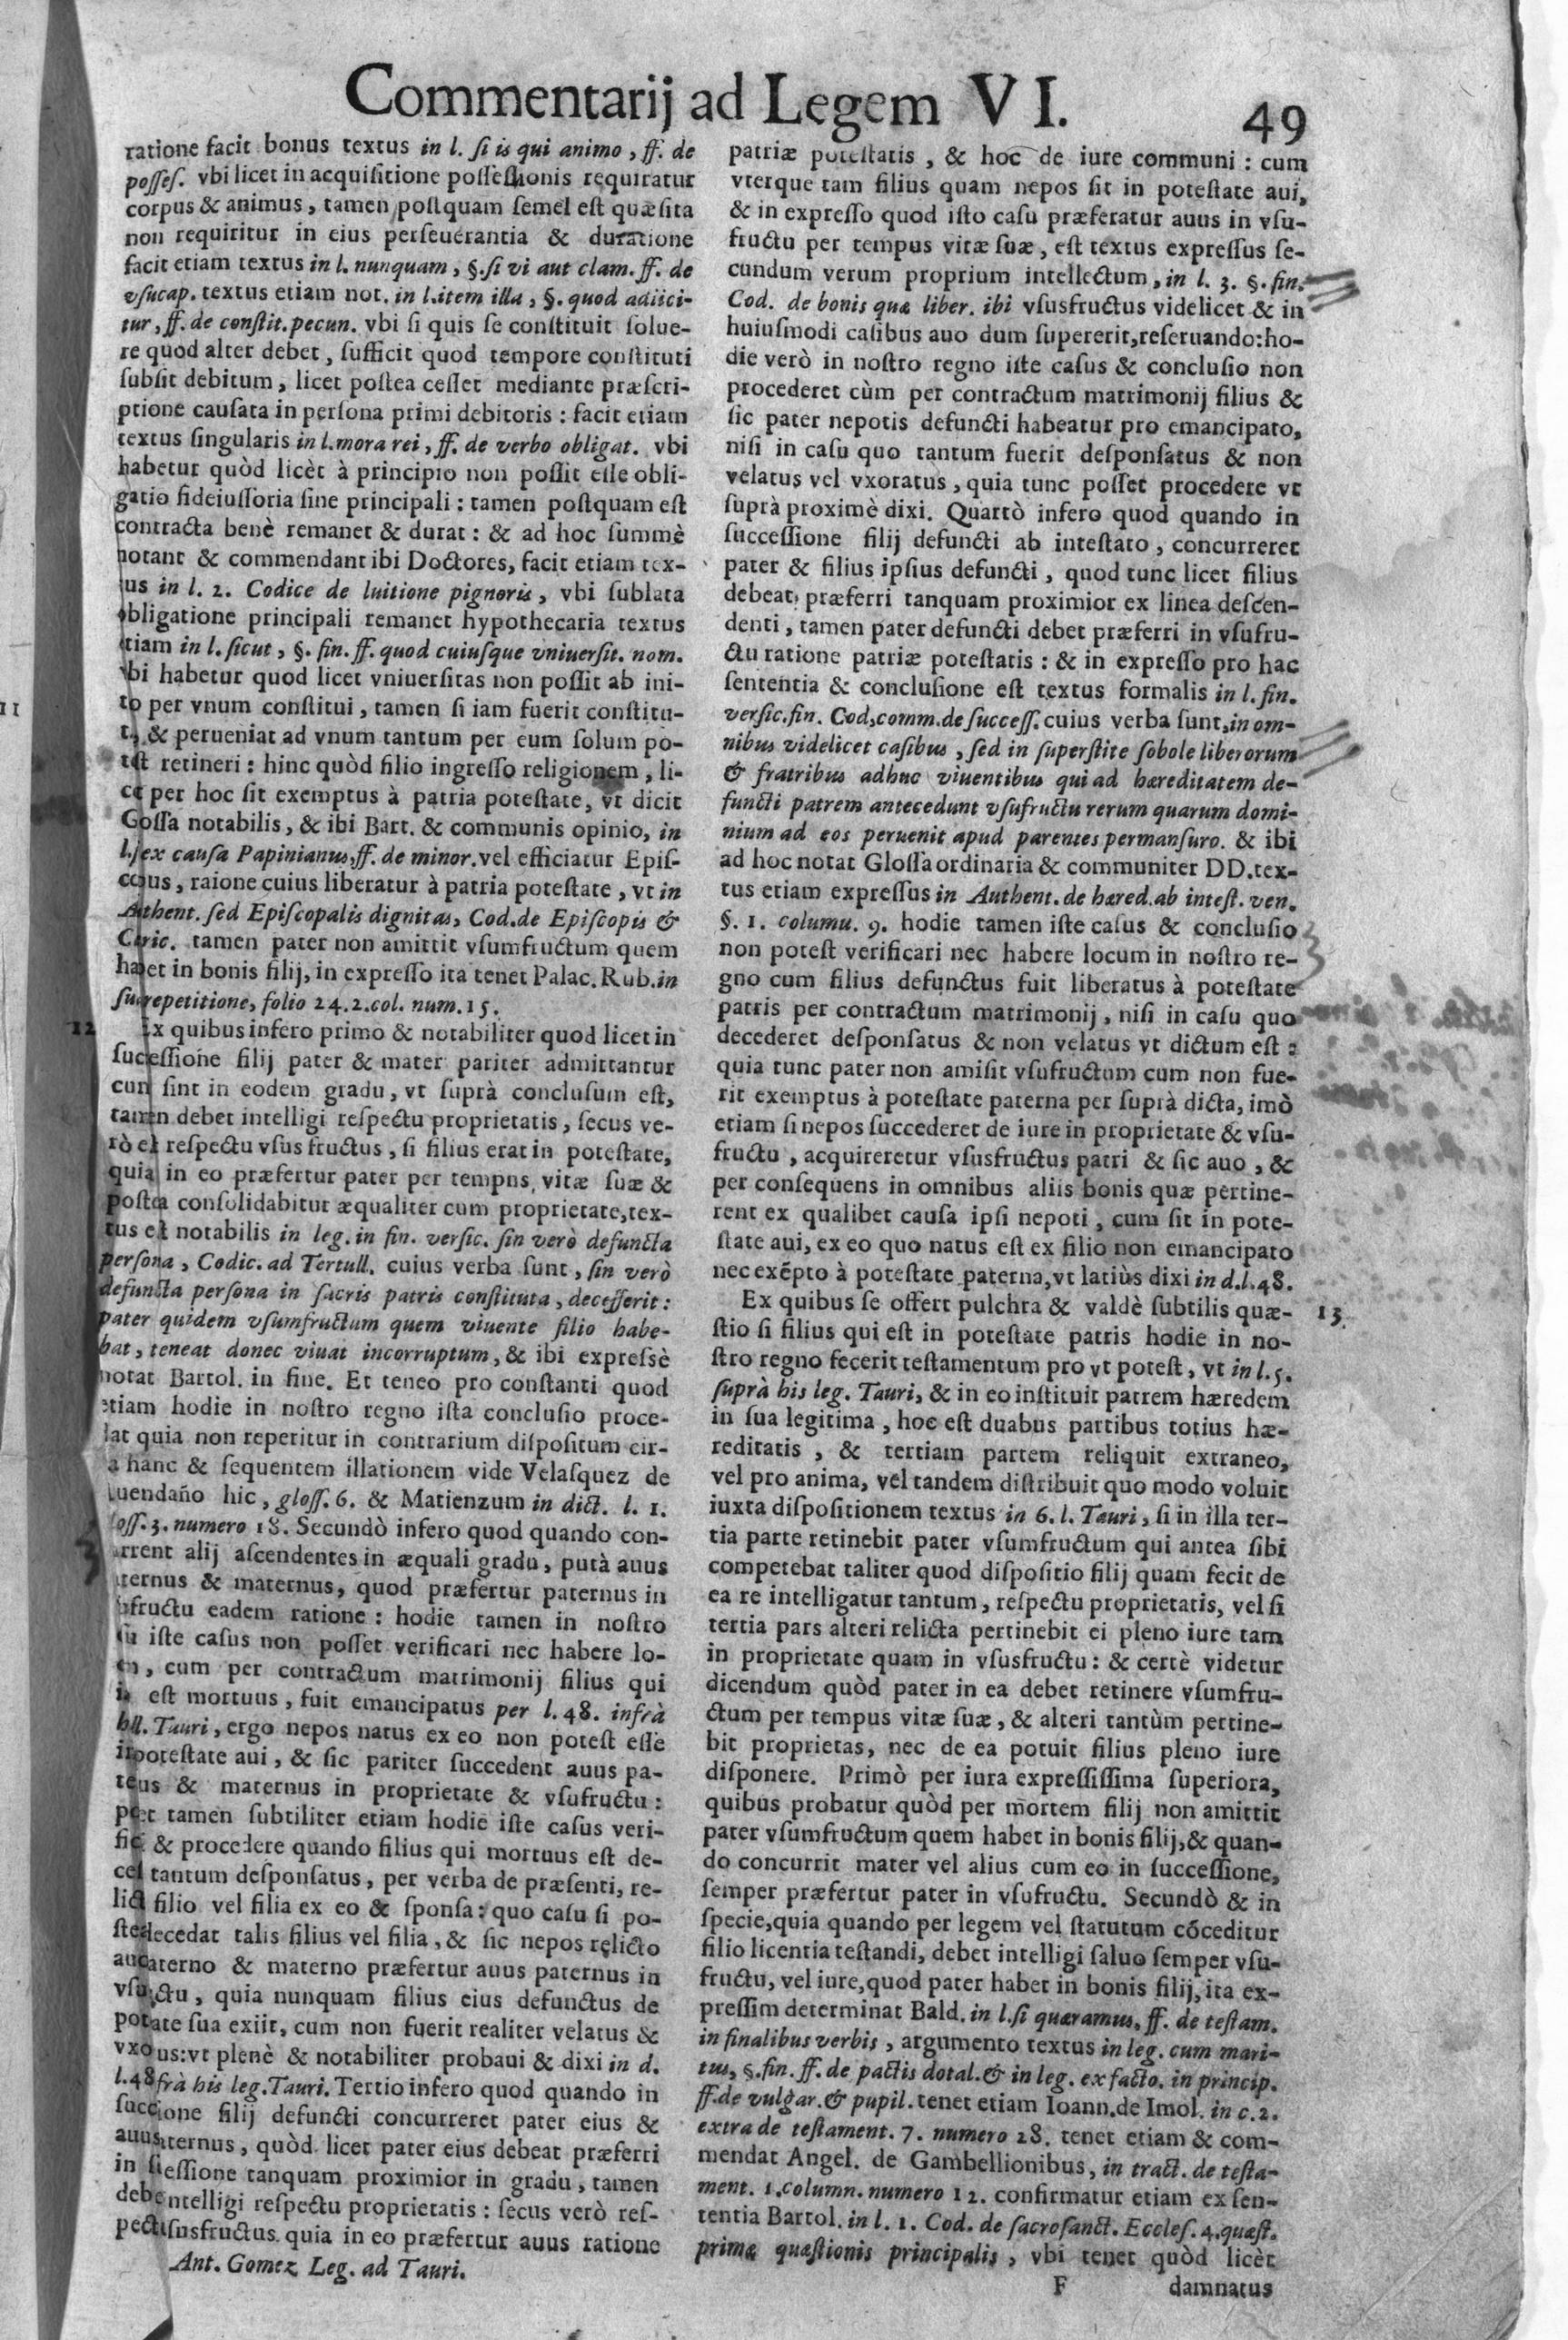 Commentarij ad Legem VI. 49
ratione facit bonus textus in l. si is qui animo, ff. de
posses. vbi licet in acquisitione possessionis requiratur
corpus & animus, tamen postquam semel est quæsita
non requiritur in eius perseuerantia & duratione
facit etiam textus in l. nunquam, §. si vi aut clam. ff. de
vsucap. textus etiam not. in l. item illa, §. quod adiici-
tur, ff. de constit. pecun. vbi si quis se constituit solue-
re quod alter debet, sufficit quod tempore constituti
subsit debitum, licet postea cesset mediante præscri-
ptione causata in persona primi debitoris : facit etiam
textus singularis in l. mora rei, ff. de verbo obligat. vbi
habetur quòd licèt à principio non possit esse obli-
gatio fideiussoria sine principali : tamen postquam est
contracta benè remanet & durat : & ad hoc summè
notant & commendant ibi Doctores, facit etiam tex-
us in l. 2. Codice de luitione pignoris, vbi sublata
obligatione principali remanet hypothecaria textus
etiam in l. sicut, §. fin. ff. quod cuiusque vniuersit. nom.
vbi habetur quod licet vniuersitas non possit ab ini-
11 to per vnum constitui, tamen si iam fuerit constitu-
t, & perueniat ad vnum tantum per eum solum po-
test retineri : hinc quòd filio ingresso religionem, li-
cet per hoc sit exemptus à patria potestate, vt dicit
Glossa notabilis, & ibi Bart. & communis opinio, in
l. ex causa Papinianus, ff. de minor. vel efficiatur Epis-
copus, raione cuius liberatur à patria potestate, vt in
Authent. sed Episcopalis dignitas, Cod. de Episcopis &
Cleric. tamen pater non amittit vsumfructum quem
habet in bonis filij, in expresso ita tenet Palac. Rub. in
sua repetitione, folio 24. 2. col. num. 15.
12 Ex quibus infero primo & notabiliter quod licet in
successione filij pater & mater pariter admittantur
cum sint in eodem gradu, vt suprà conclusum est,
tamen debet intelligi respectu proprietatis, secus ve-
rò est respectu vsus fructus, si filius erat in potestate,
quia in eo præfertur pater per tempus vitæ suæ &
postea consolidabitur æqualiter cum proprietate, tex-
tus est notabilis in leg. in fin. versic. sin verò defuncta
persona, Codic. ad Tertull. cuius verba sunt, sin verò
defuncta persona in sacris patris constituta, decesserit :
pater quidem vsumfructum quem viuente filio habe-
bat, teneat donec viuat incorruptum, & ibi expressè
notat Bartol. in fine. Et teneo pro constanti quod
etiam hodie in nostro regno ista conclusio proce-
dat quia non reperitur in contrarium dispositum cir-
ca hanc & sequentem illationem vide Velasquez de
Auendaño hic, gloss. 6. & Matienzum in dict. l. 1.
gloss. 3. numero 18. Secundò infero quod quando con-
current alij ascendentes in æquali gradu, putà auus
paternus & maternus, quod præfertur paternus in
vsufructu eadem ratione : hodie tamen in nostro
iste casus non posset verificari nec habere lo-
cum, cum per contractum matrimonij filius qui
est mortuus, fuit emancipatus per l. 48. infrà
Tauri, ergo nepos natus ex eo non potest esse
in potestate aui, & sic pariter succedent auus pa-
ternus & maternus in proprietate & vsufructu :
potest tamen subtiliter etiam hodie iste casus veri-
ficari & procedere quando filius qui mortuus est de-
cessit tantum desponsatus, per verba de præsenti, re-
licto filio vel filia ex eo & sponsa : quo casu si po-
stea decedat talis filius vel filia, & sic nepos relicto
auo paterno & materno præfertur auus paternus in
vsufructu, quia nunquam filius eius defunctus de
potestate sua exiit, cum non fuerit realiter velatus &
vxoratus: vt plenè & notabiliter probaui & dixi in d.
l. 48. infrà his leg. Tauri. Tertio infero quod quando in
successione filij defuncti concurreret pater eius &
auus paternus, quòd licet pater eius debeat præferri
in successione tanquam proximior in gradu, tamen
debet intelligi respectu proprietatis : secus verò res-
pectu vsusfructus. quia in eo præfertur auus ratione
Ant. Gomez Leg. ad Tauri.
patriæ potestatis, & hoc de iure communi : cum
vterque tam filius quam nepos sit in potestate aui,
& in expresso quod isto casu præferatur auus in vsu-
fructu per tempus vitæ suæ, est textus expressus se-
cundum verum proprium intellectum, in l. 3. §. fin.
Cod. de bonis quæ liber. ibi vsusfructus videlicet & in
huiusmodi casibus auo dum supererit, reseruando: ho-
die verò in nostro regno iste casus & conclusio non
procederet cùm per contractum matrimonij filius &
sic pater nepotis defuncti habeatur pro emancipato,
nisi in casu quo tantum fuerit desponsatus & non
velatus vel vxoratus, quia tunc posset procedere vt
suprà proximè dixi. Quartò infero quod quando in
successione filij defuncti ab intestato, concurreret
pater & filius ipsius defuncti, quod tunc licet filius
debeat præferri tanquam proximior ex linea descen-
denti, tamen pater defuncti debet præferri in vsufru-
ctu ratione patriæ potestatis : & in expresso pro hac
sententia & conclusione est textus formalis in l. fin.
versic. fin. Cod. comm. de success. cuius verba sunt, in om-
nibus videlicet casibus, sed in superstite sobole liberorum
& fratribus adhuc viuentibus qui ad hæreditatem de-
functi patrem antecedunt vsufructu rerum quarum domi-
nium ad eos peruenit apud parentes permansuro. & ibi
ad hoc notat Glossa ordinaria & communiter DD. tex-
tus etiam expressus in Authent. de hæred. ab intest. ven.
§. 1. columu. 9. hodie tamen iste casus & conclusio
non potest verificari nec habere locum in nostro re-
gno cum filius defunctus fuit liberatus à potestate
patris per contractum matrimonij, nisi in casu quo
decederet desponsatus & non velatus vt dictum est :
quia tunc pater non amisit vsufructum cum non fue-
rit exemptus à potestate paterna per suprà dicta, imò
etiam si nepos succederet de iure in proprietate & vsu-
fructu, acquireretur vsusfructus patri & sic auo, &
per consequens in omnibus aliis bonis quæ pertine-
rent ex qualibet causa ipsi nepoti, cum sit in pote-
state aui, ex eo quo natus est ex filio non emancipato
nec exẽpto à potestate paterna, vt latiùs dixi in d. l. 48.
Ex quibus se offert pulchra & valdè subtilis quæ- 13.
stio si filius qui est in potestate patris hodie in no-
stro regno fecerit testamentum pro vt potest, vt in l. 5.
suprà his leg. Tauri, & in eo instituit patrem hæredem
in sua legitima, hoc est duabus partibus totius hæ-
reditatis, & tertiam partem reliquit extraneo,
vel pro anima, vel tandem distribuit quo modo voluit
iuxta dispositionem textus in 6. l. Tauri, si in illa ter-
tia parte retinebit pater vsumfructum qui antea sibi
competebat taliter quod dispositio filij quam fecit de
ea re intelligatur tantum, respectu proprietatis, vel si
tertia pars alteri relicta pertinebit ei pleno iure tam
in proprietate quam in vsusfructu : & certè videtur
dicendum quòd pater in ea debet retinere vsumfru-
ctum per tempus vitæ suæ, & alteri tantùm pertine-
bit proprietas, nec de ea potuit filius pleno iure
disponere. Primò per iura expressissima superiora,
quibus probatur quòd per mortem filij non amittit
pater vsumfructum quem habet in bonis filij, & quan-
do concurrit mater vel alius cum eo in successione,
semper præfertur pater in vsufructu. Secundò & in
specie, quia quando per legem vel statutum cõceditur
filio licentia testandi, debet intelligi saluo semper vsu-
fructu, vel iure, quod pater habet in bonis filij, ita ex-
pressim determinat Bald. in l. si quæramus. ff. de testam.
in finalibus verbis, argumento textus in leg. cum mari-
tus, §. fin. ff. de pactis dotal. & in leg. ex facto. in princip.
ff. de vulgar. & pupil. tenet etiam Ioann. de Imol. in c. 2.
extra de testament. 7. numero 28. tenet etiam & com-
mendat Angel. de Gambellionibus, in tract. de testa-
ment. 1. column. numero 12. confirmatur etiam ex sen-
tentia Bartol. in l. 1. Cod. de sacrosanct. Eccles. 4. quæst.
primæ quæstionis principalis, vbi tenet quòd licèt
F damnatus